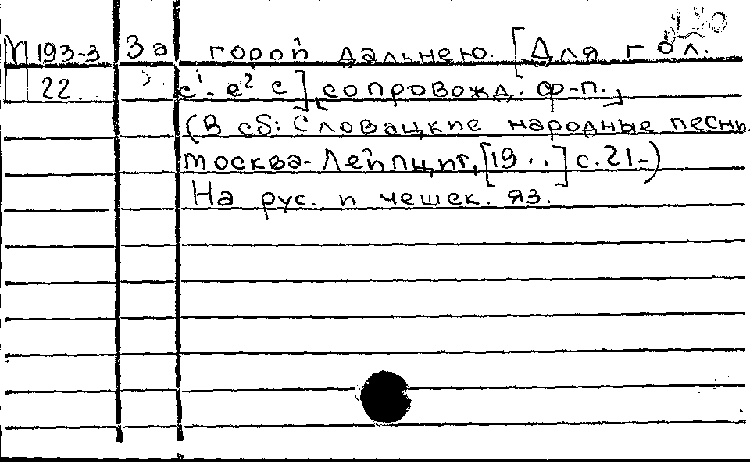 120
М 193-3 За горой дальнею. [Для гол.
22 c¹-e² с] [сопровожд. ф-п.]
(В сб: Словацкие народные песни
Москва-Лейпциг, [19..] с. 21-)
На рус. и чешек. яз.